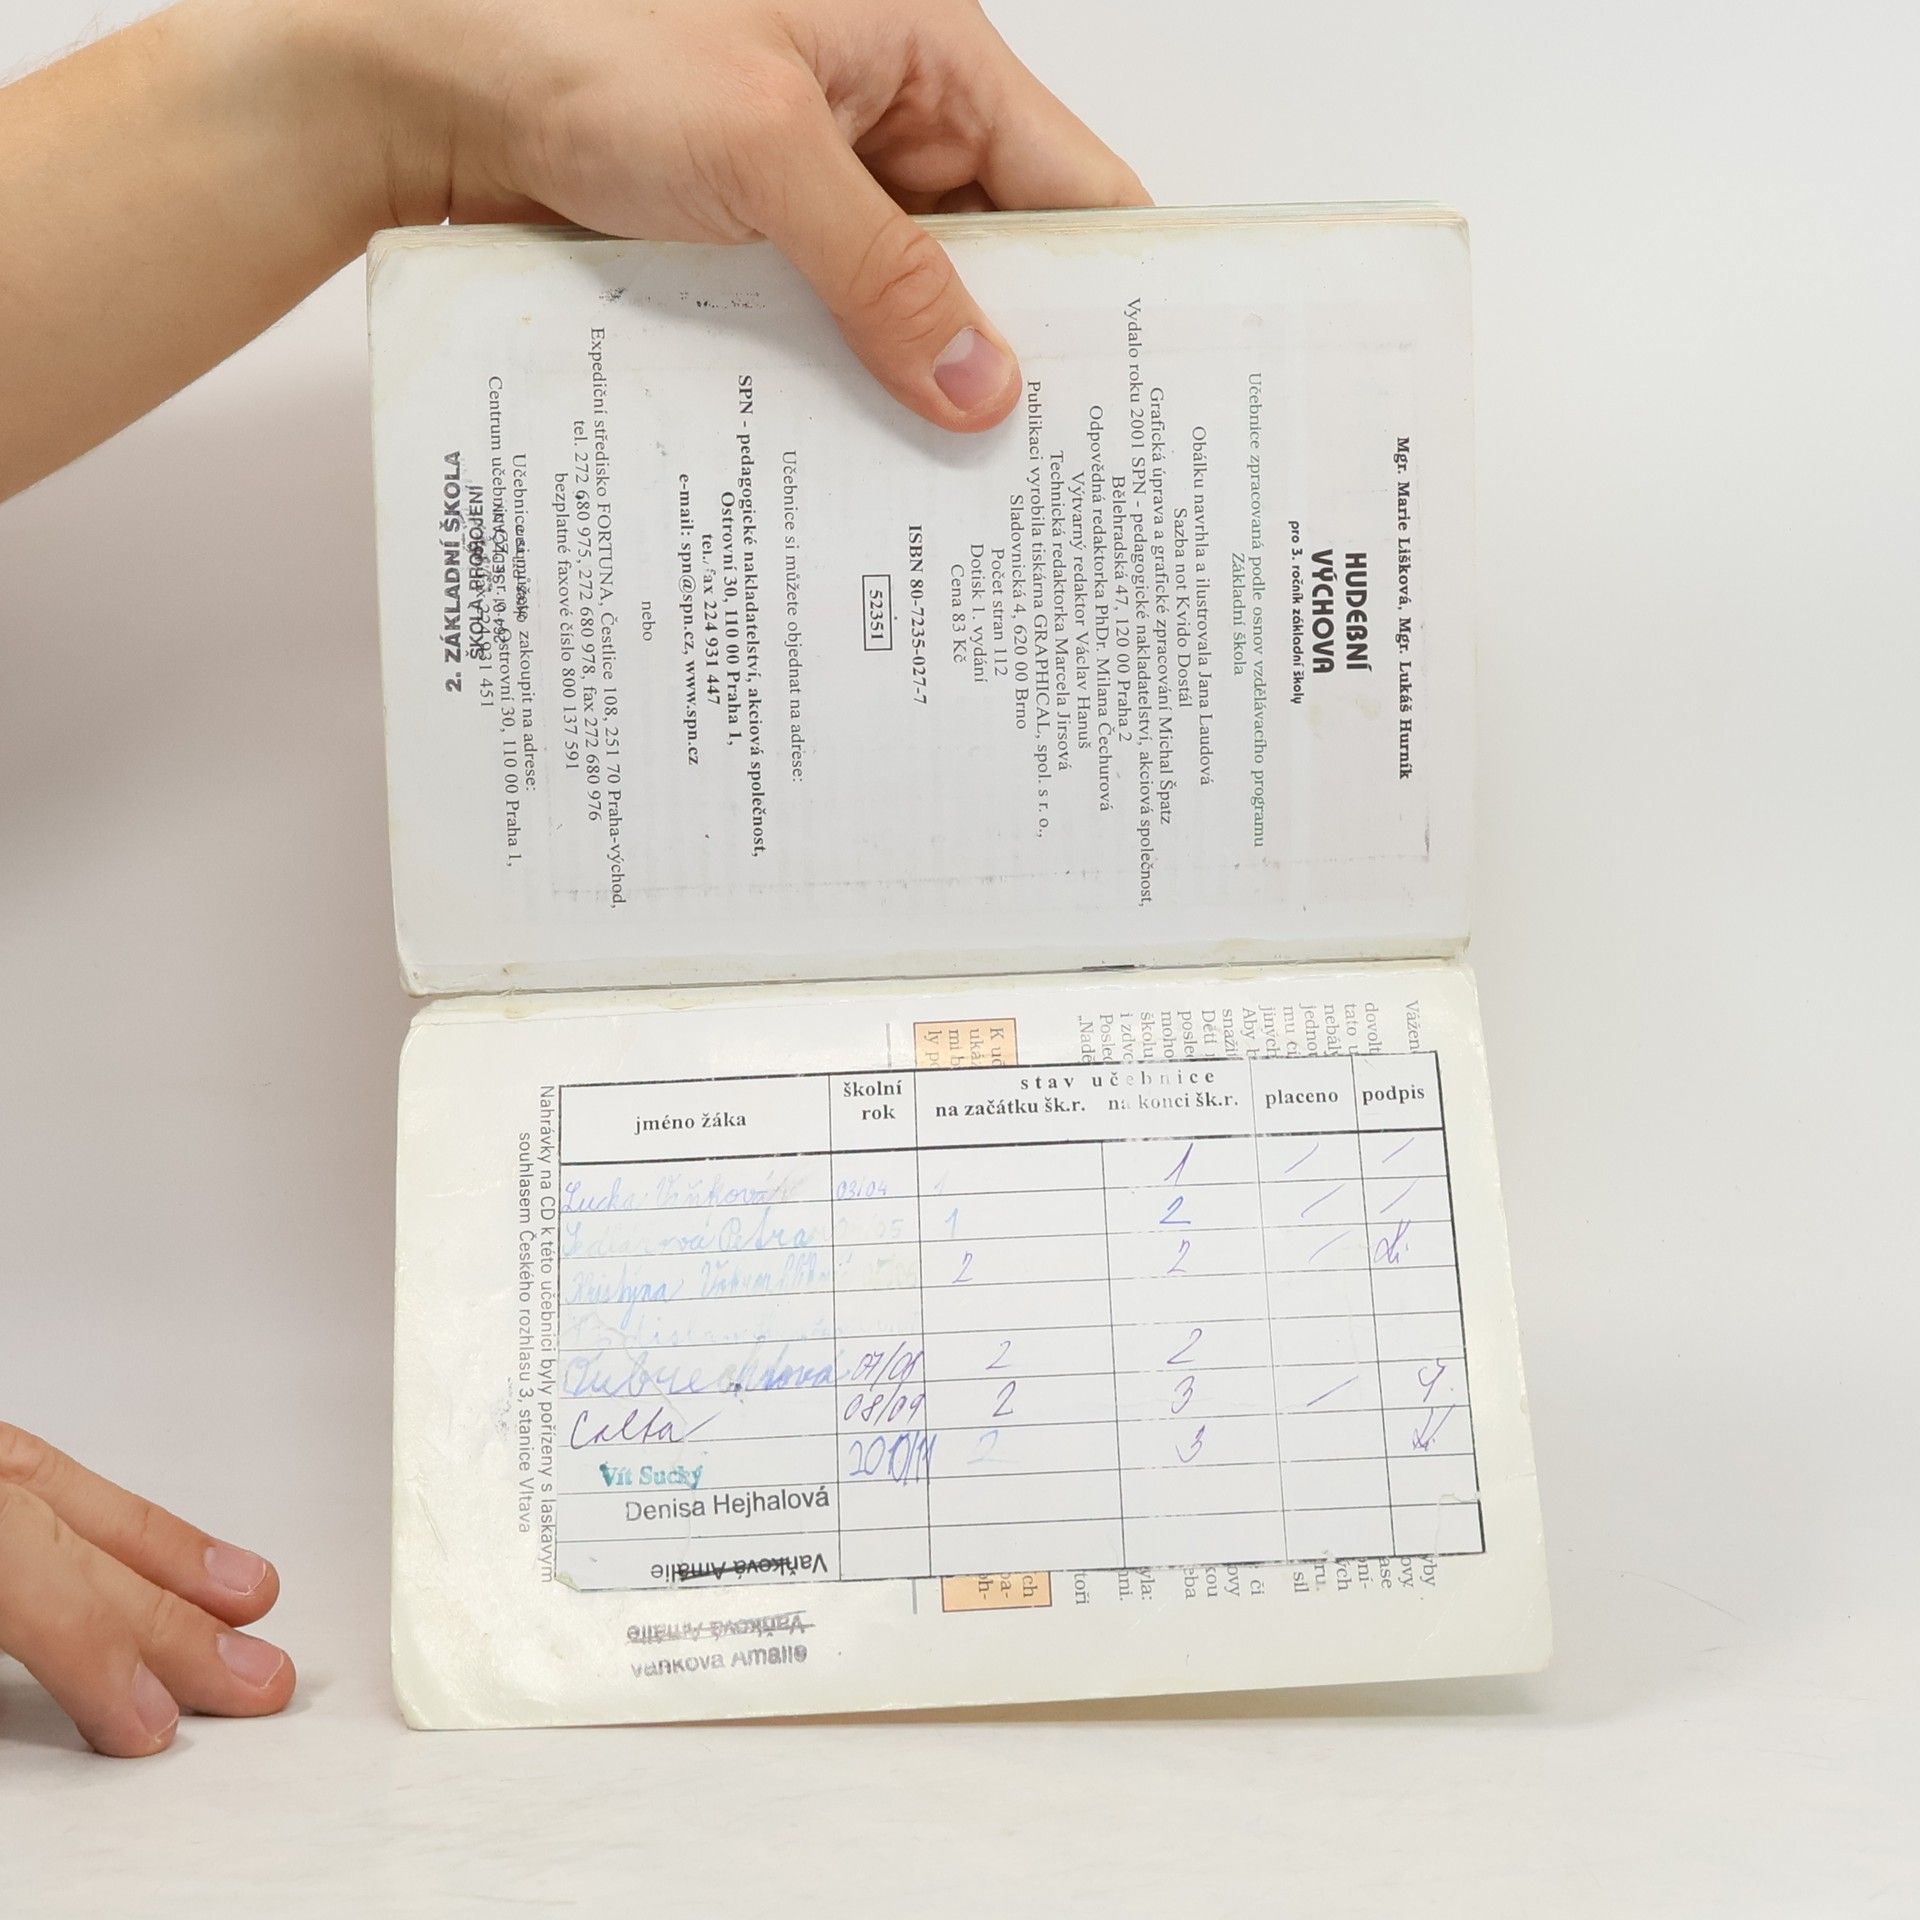 Mgr. Marie Lišková, Mgr. Lukáš Hurník
HUDEBNÍ
VÝCHOVA
pro 3. ročník základní školy
Učebnice zpracovaná podle osnov vzdělávacího programu
Základní škola
Obálku navrhla a ilustrovala Jana Laudová
Sazba not Kvido Dostál
Grafická úprava a grafické zpracování Michal Špatz
Vydalo roku 2001 SPN - pedagogické nakladatelství, akciová společnost,
Bělehradská 47, 120 00 Praha 2
Odpovědná redaktorka PhDr. Milana Čechurová
Výtvarný redaktor Václav Hanuš
Technická redaktorka Marcela Jirsová
Publikaci vyrobila tiskárna GRAPHICAL, spol. s r. o.,
Sladovnická 4, 620 00 Brno
Počet stran 112
Dotisk 1. vydání
Cena 83 Kč
ISBN 80-7235-027-7
52351
Učebnice si můžete objednat na adrese:
SPN - pedagogické nakladatelství, akciová společnost,
Ostrovní 30, 110 00 Praha 1,
tel./fax 224 931 447
e-mail: spn@spn.cz, www.spn.cz
nebo
Expediční středisko FORTUNA, Čestlice 108, 251 70 Praha-východ,
tel. 272 680 975, 272 680 978, fax 272 680 976
bezplatné faxové číslo 800 137 591
Učebnice si můžete zakoupit na adrese:
Centrum učebnic Ostrovní 30, 110 00 Praha 1,
224 931 451
2. ZÁKLADNÍ ŠKOLA
jméno žáka školní rok stav učebnice na začátku šk.r. na konci šk.r. placeno podpis
Lucka 03/04 1 1 / /
Petra 1 2 / /
Kristýna 2 2 /
07/08 2 2
Calta 08/09 2 3 /
Vít Sucký 2010/11 2 3
Denisa Hejhalová
Vaňková Amálie
Vaňková Amálie
Vaňková Amálie
Nahrávky na CD k této učebnici byly pořízeny s laskavým
souhlasem Českého rozhlasu 3, stanice Vltava